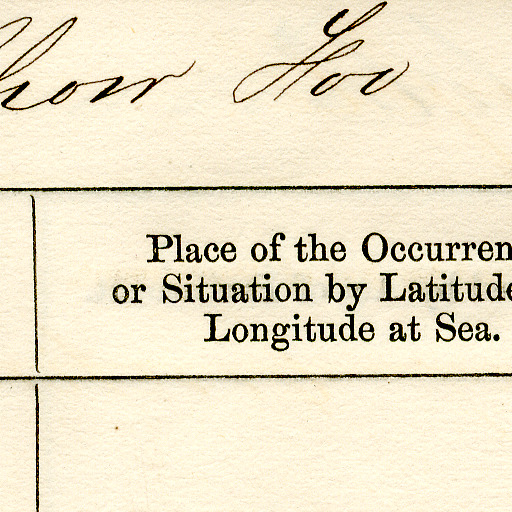 Foo
Place of the Occurren
or Situation by Latitude
Longitude at Sea.